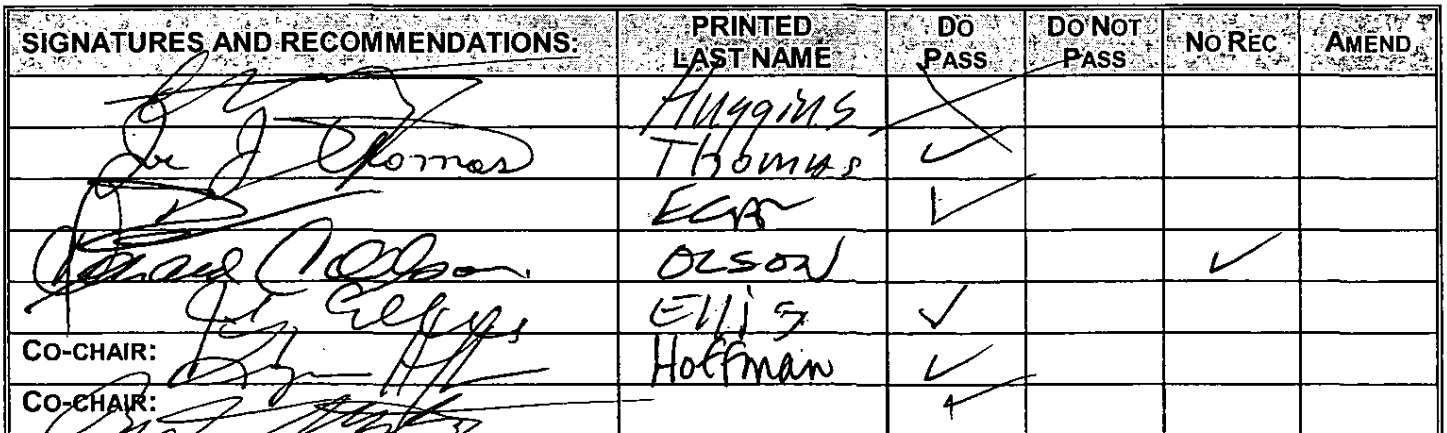 SIGNATURES AND RECOMMENDATIONS: PRINTED LAST NAME DO PASS DO NOT PASS NO REC AMEND
Huggins
Joe J Thomas Thomas ✓
Egan ✓
Olson OLSON ✓
Ellis ✓
CO-CHAIR: Hoffman ✓
CO-CHAIR: